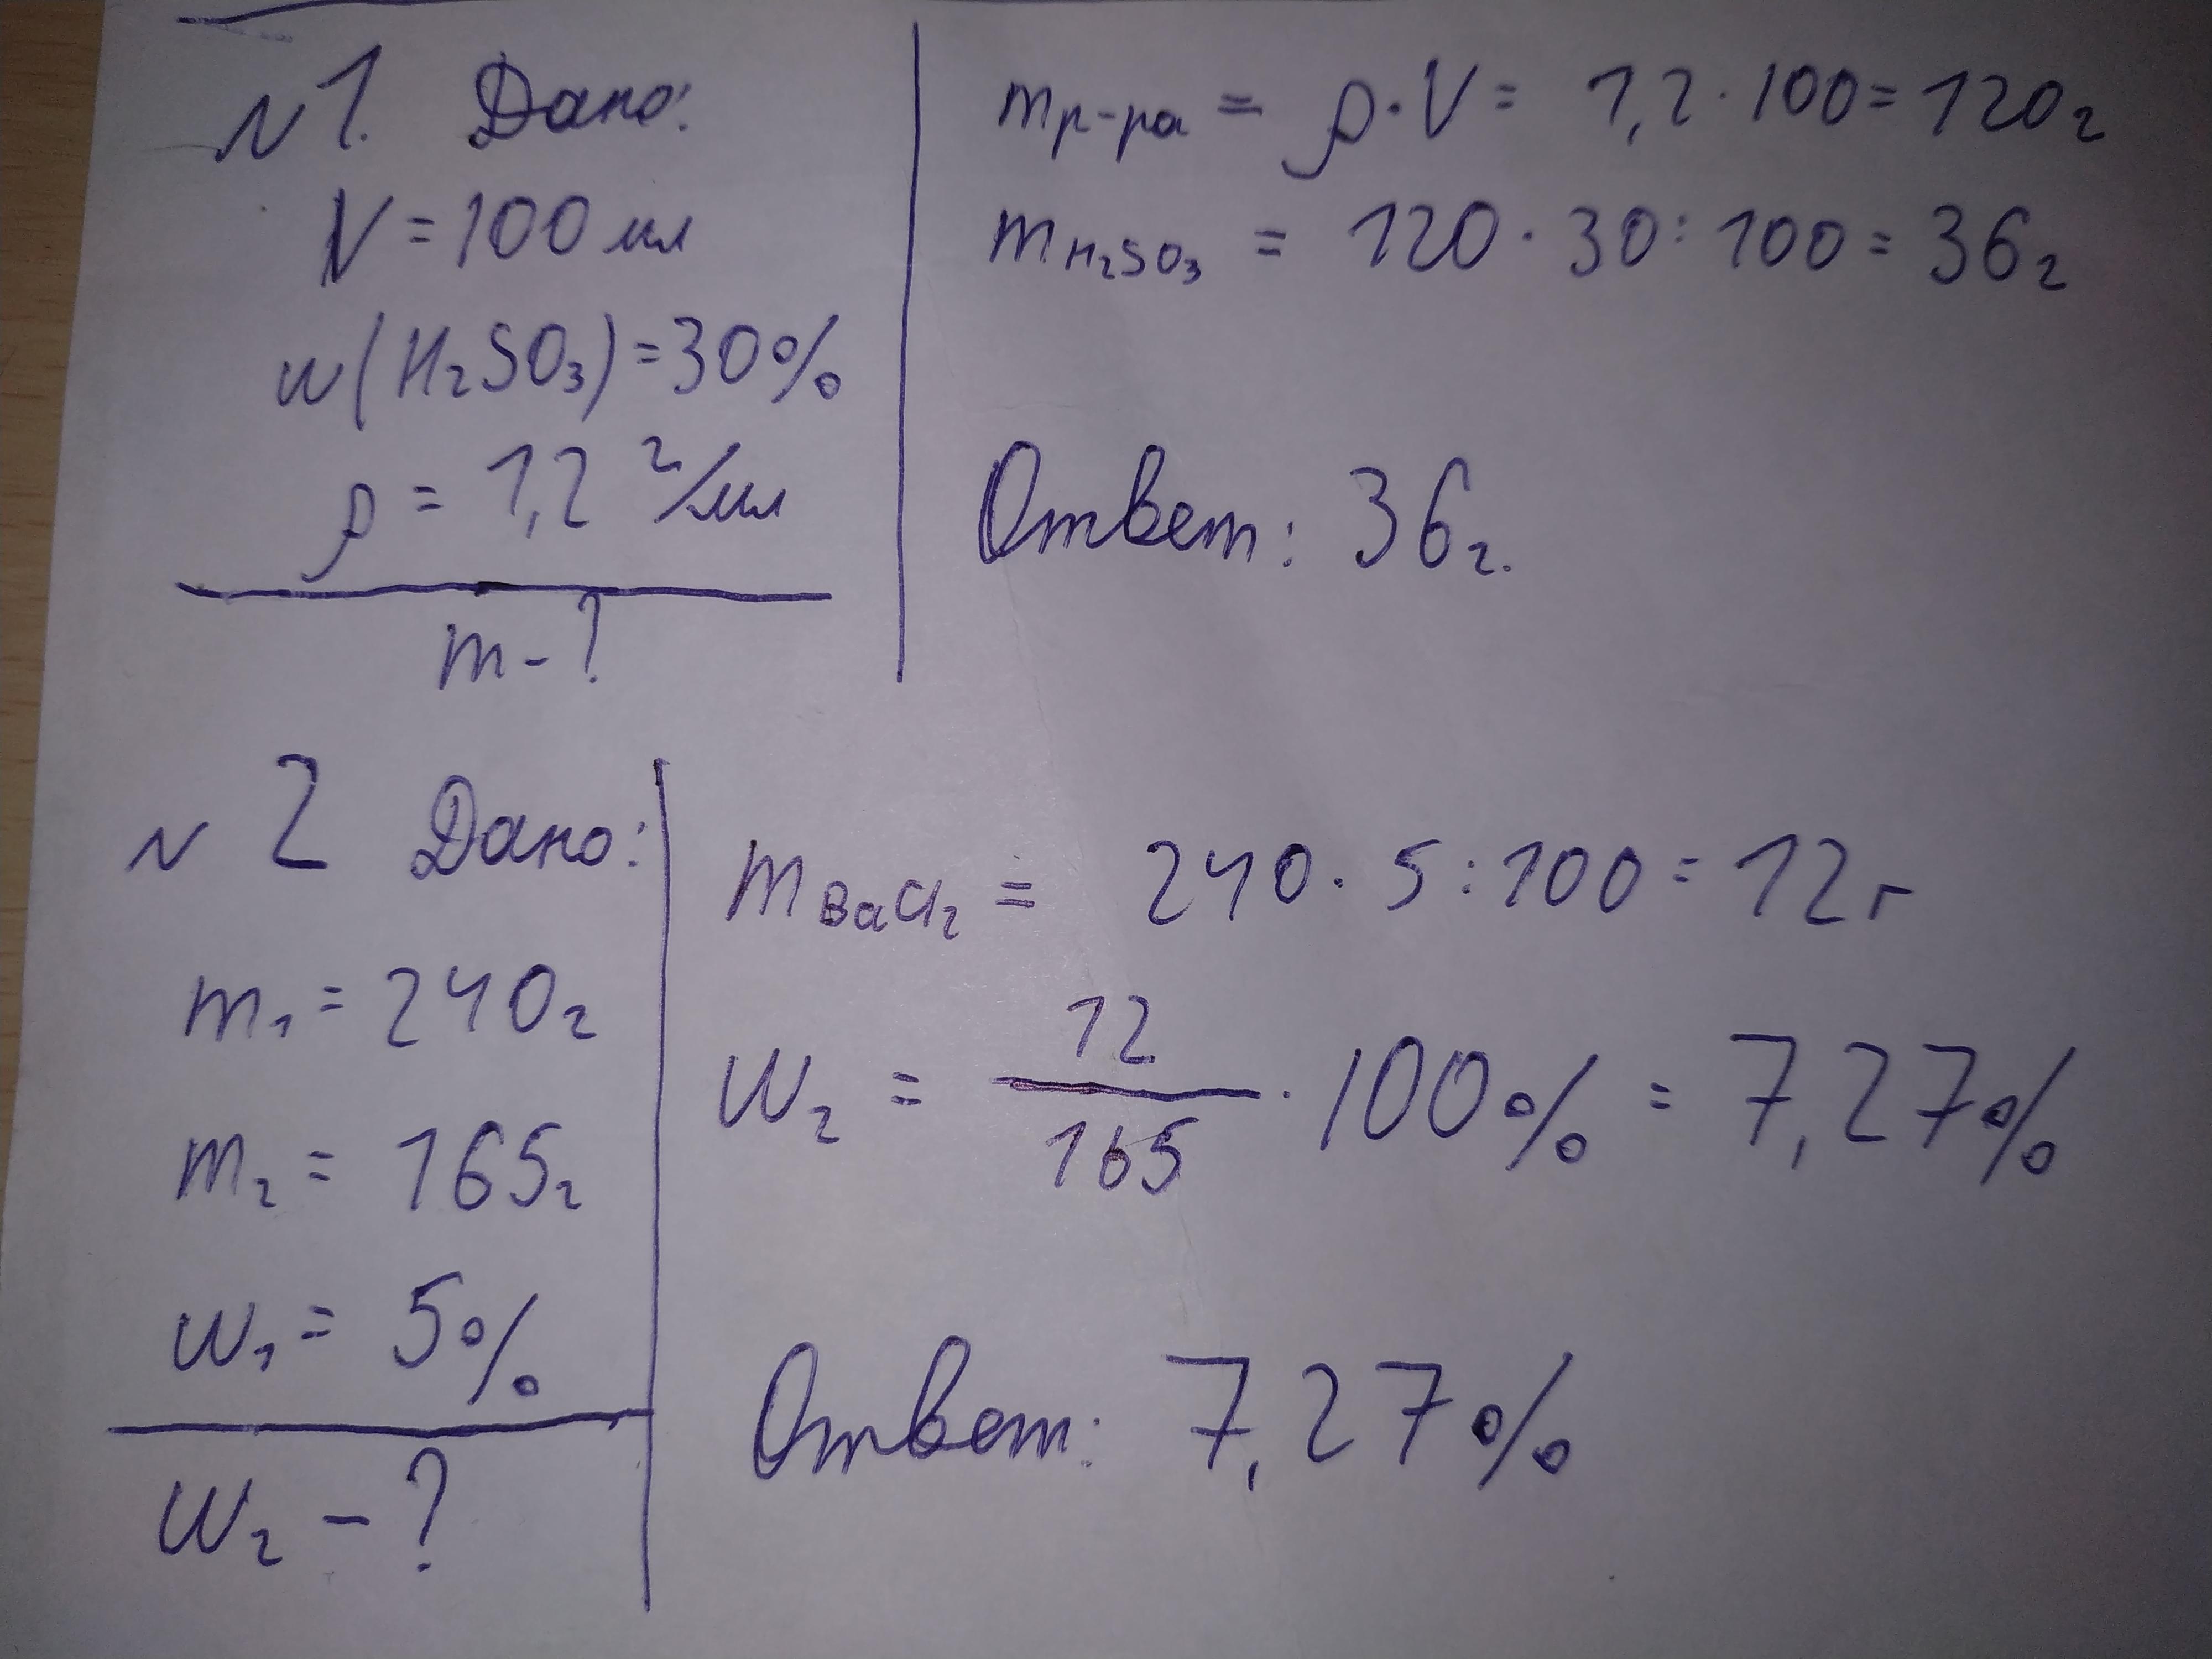 N 1. Дано:
V = 100 мл
w(H₂SO₃) = 30%
ρ = 1,2 г/мл
m - ?
mр-ра = ρ · V = 1,2 · 100 = 120 г
mH₂SO₃ = 120 · 30 : 100 = 36 г
Ответ: 36 г.
N 2 Дано:
m₁ = 240 г
m₂ = 165 г
w₁ = 5%
w₂ - ?
mBaCl₂ = 240 · 5 : 100 = 12 г
w₂ = 12/165 · 100% = 7,27%
Ответ: 7,27%